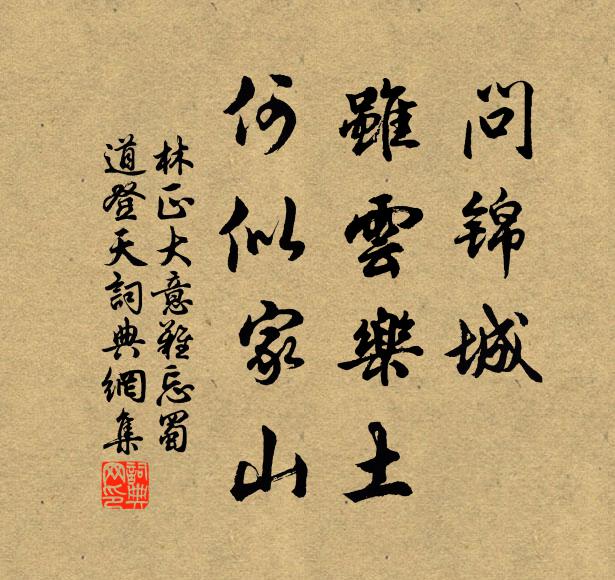 問锦城
雖雲樂土
何似家山
林正大意難忘蜀
道登天詞典網集
詞典网印